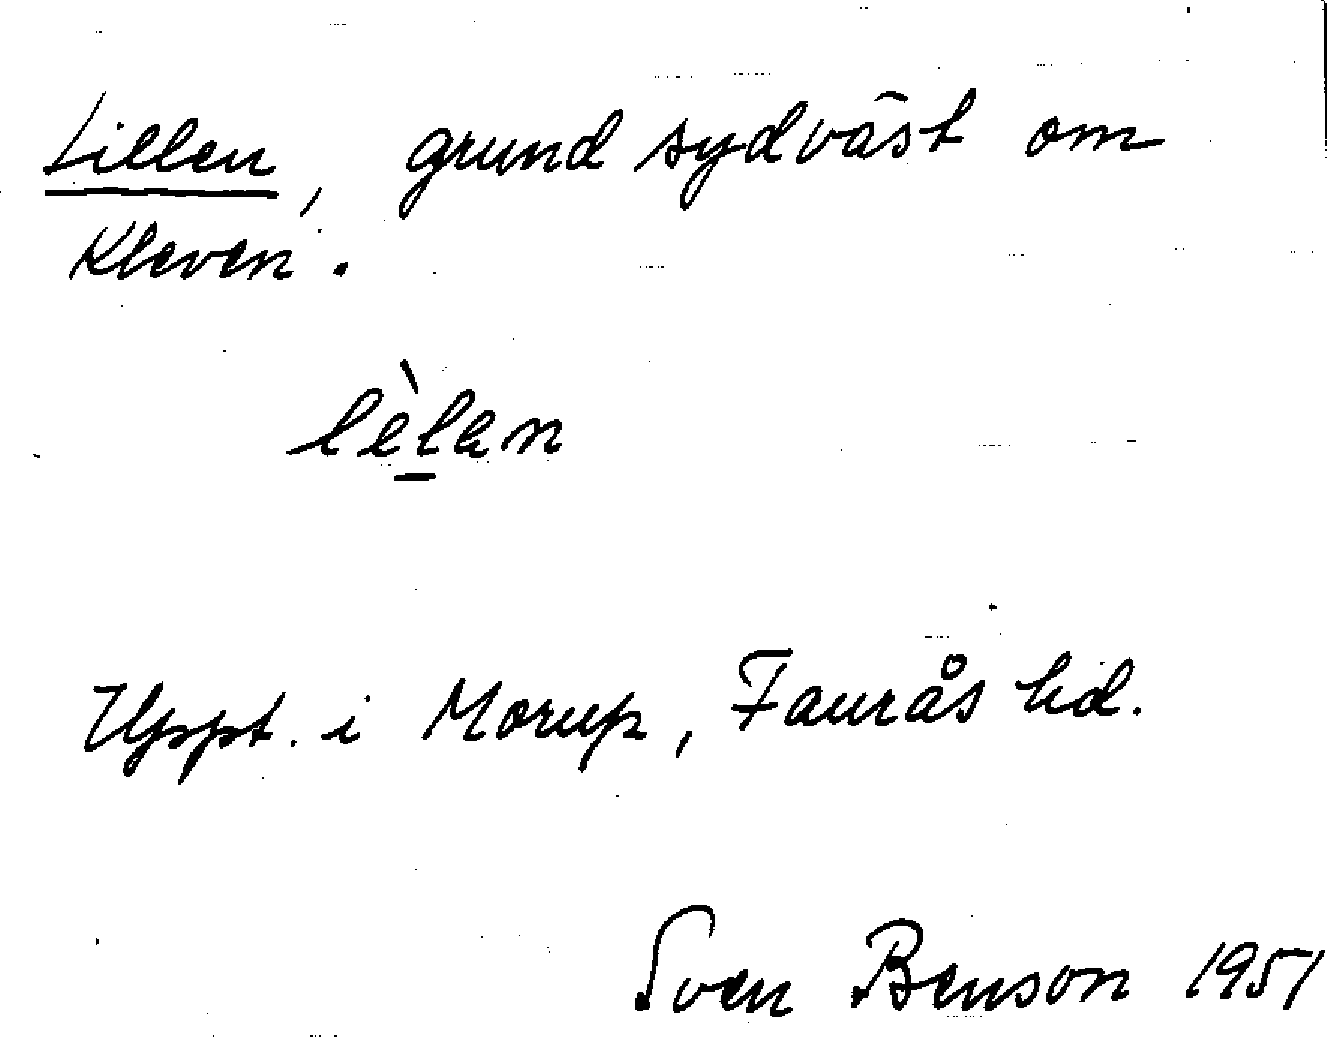 Lillen, grund sydväst om
Kleven.
lèlan
Uppt. i Morup, Faurås hd.
Sven Benson 1951